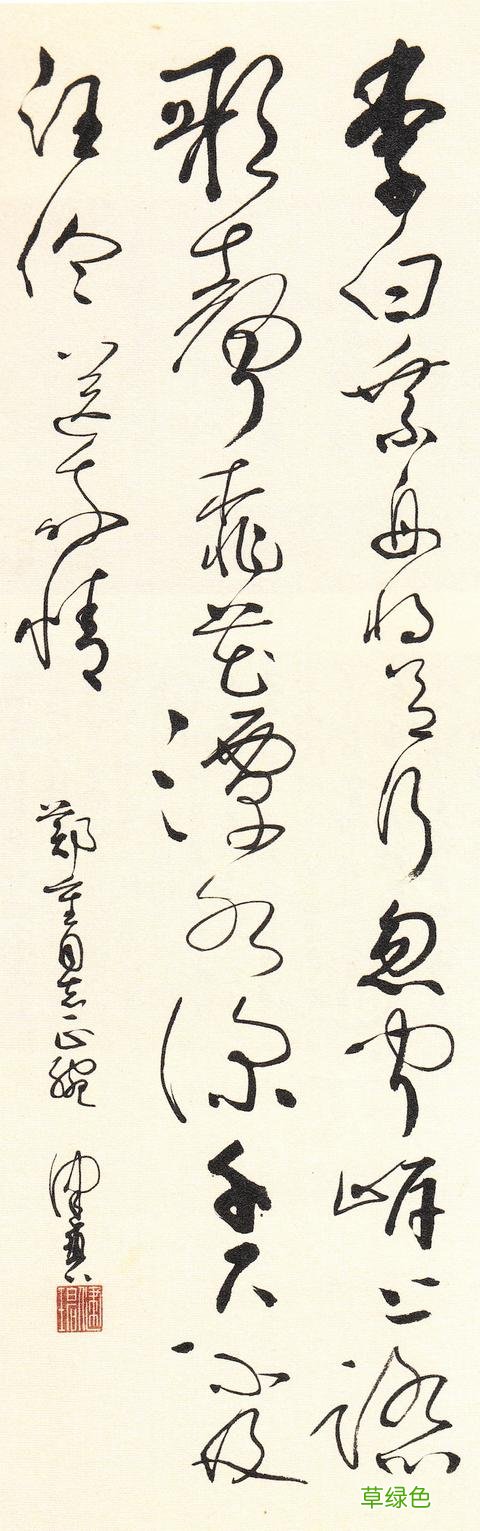 李白乘舟將欲行忽聞岸上踏
歌聲桃花潭水深千尺不及
汪倫送我情
鄭重同志正腕
草绿色